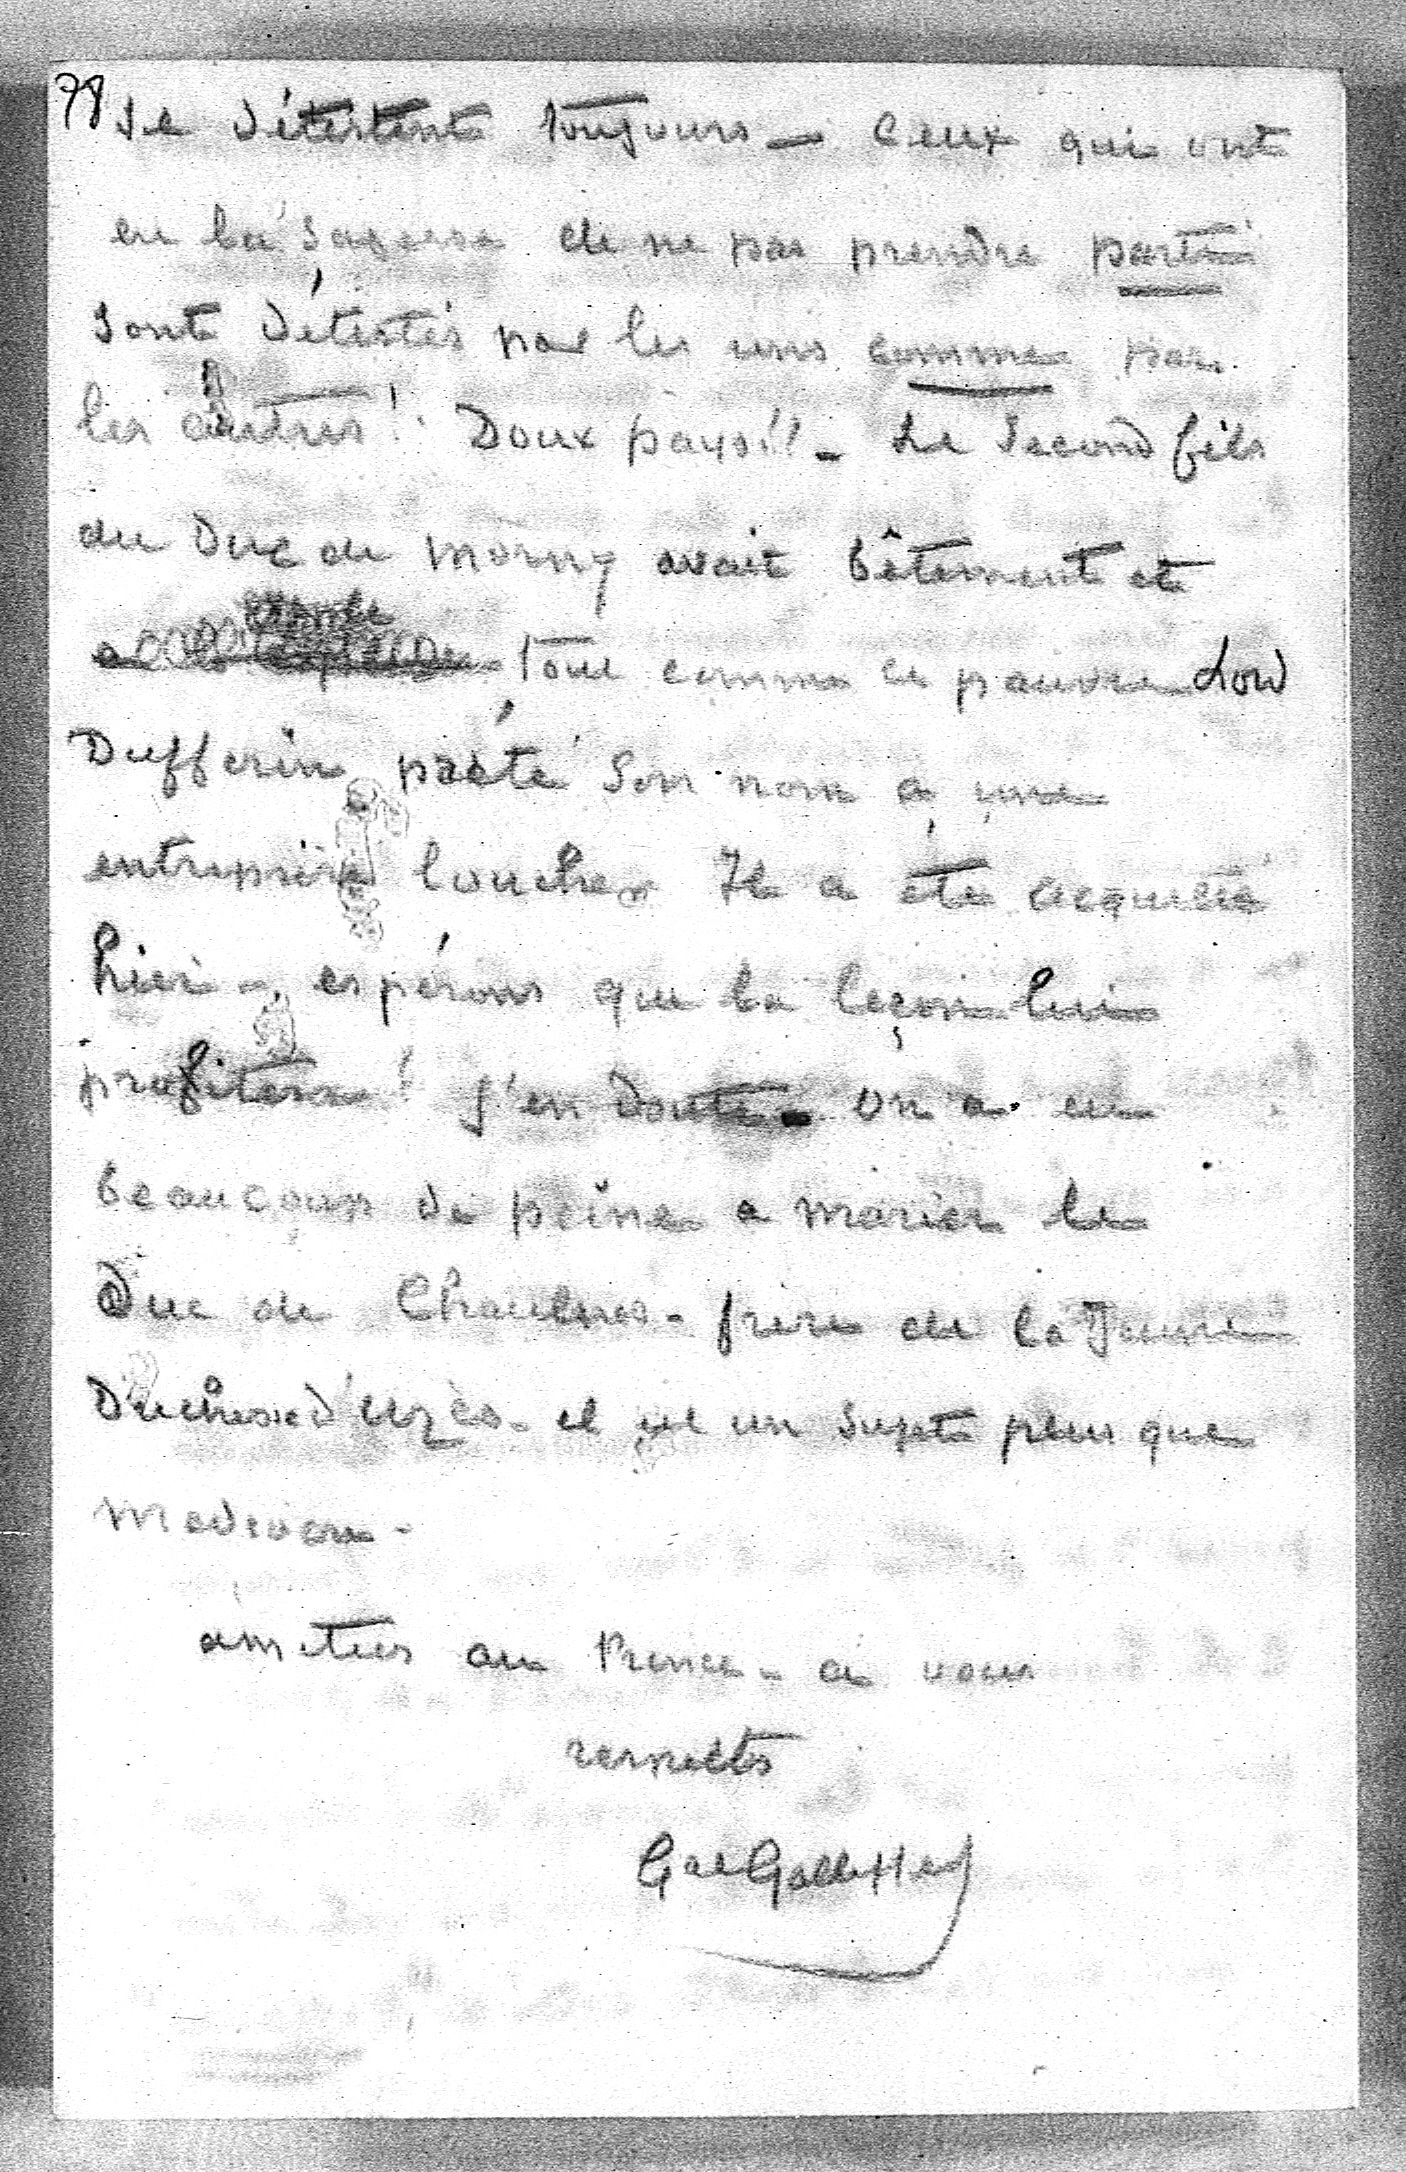 78
se détestent toujours — Ceux qui ont
eu la sagesse de ne pas prendre parti
sont détestés par les uns comme par
les autres ! Doux pays !! — Le second fils
du Duc de Morny avait bêtement et
tout comme ce pauvre Lord
Dufferin prêté son nom à une
entreprise louche. Il a été acquitté
hier — espérons que la leçon lui
profitera ! J'en doute — On a eu
beaucoup de peine a marier le
Duc de Chaulnes — frère de la jeune
Duchesse d'Uzès — il est un sujet plus que
médiocre —
amitiés au Prince — à vous
respects
Gal Galliffet